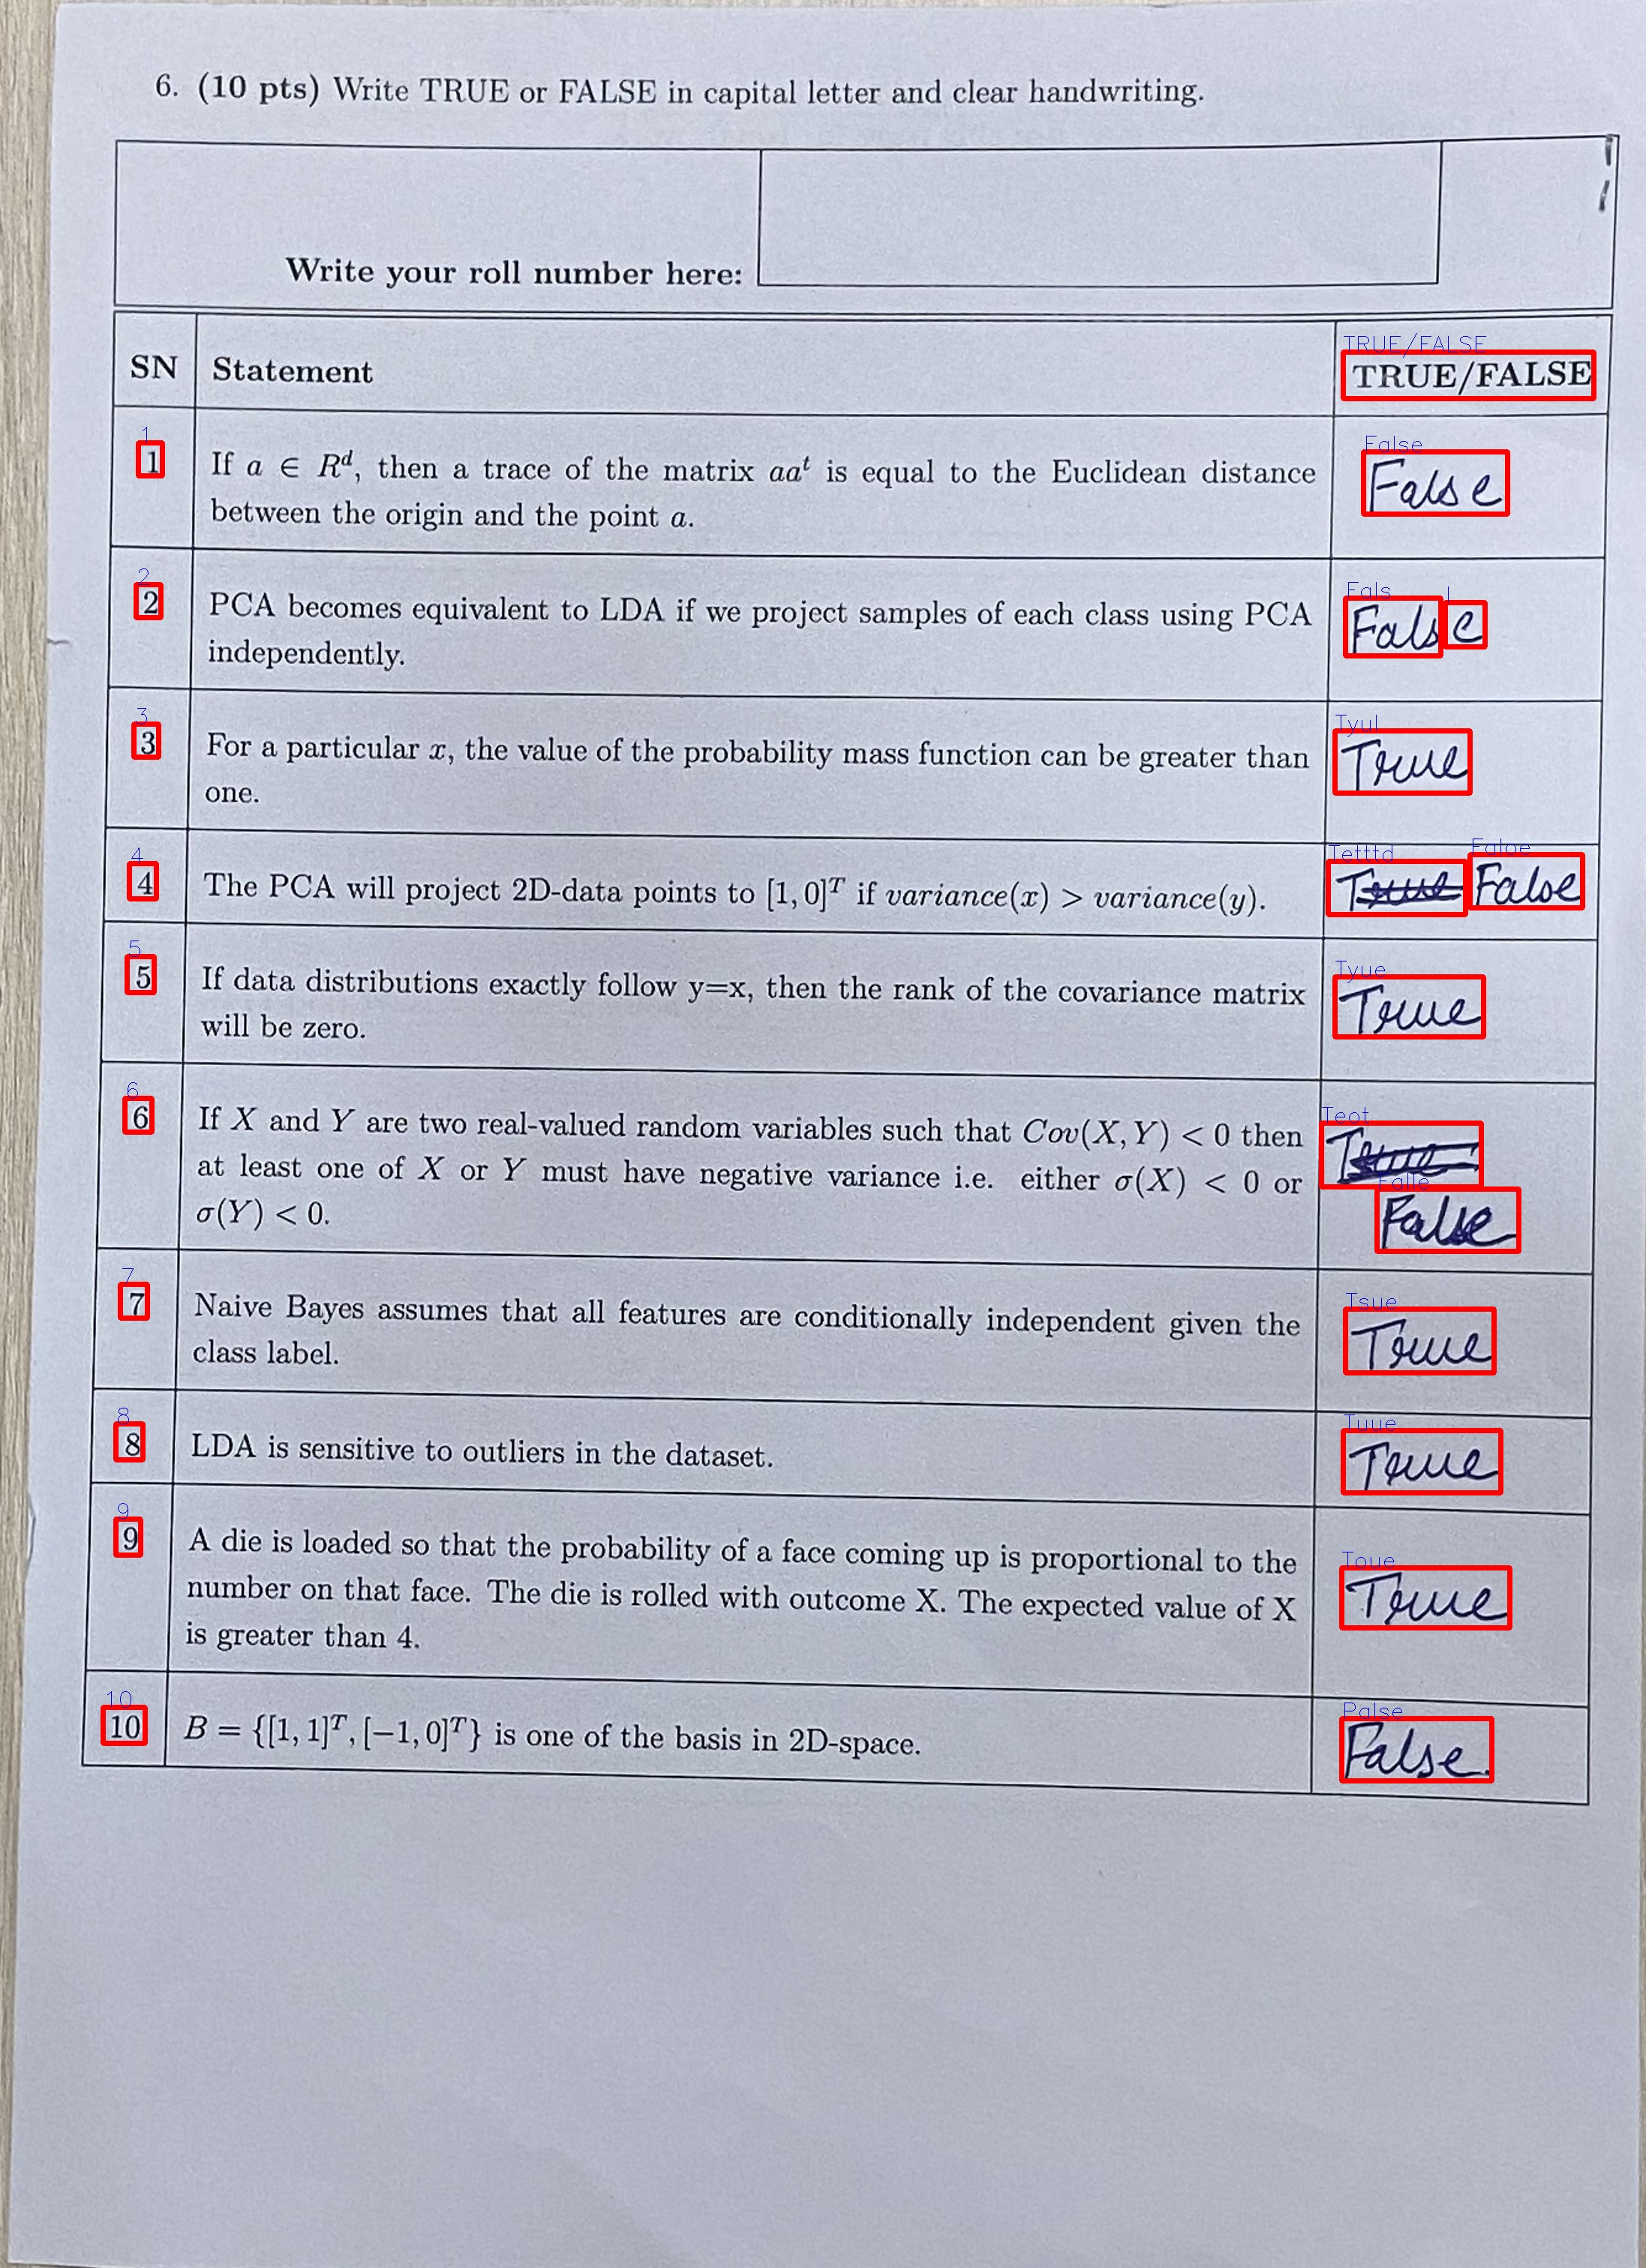 6. (10 pts) Write TRUE or FALSE in capital letter and clear handwriting.
Write your roll number here:
SN Statement TRUE/FALSE
TRUE/FALSE
1
1 If a ∈ R^d, then a trace of the matrix aa^t is equal to the Euclidean distance
between the origin and the point a.
False
False
2
2 PCA becomes equivalent to LDA if we project samples of each class using PCA
independently.
Fals
False
3
3 For a particular x, the value of the probability mass function can be greater than
one.
Tyul
True
4
4 The PCA will project 2D-data points to [1, 0]^T if variance(x) > variance(y).
Tetttd Faloe
True False
5
5 If data distributions exactly follow y=x, then the rank of the covariance matrix
will be zero.
Tyue
True
6
6 If X and Y are two real-valued random variables such that Cov(X, Y) < 0 then
at least one of X or Y must have negative variance i.e. either σ(X) < 0 or
σ(Y) < 0.
Teot
True
Falle
False
7
7 Naive Bayes assumes that all features are conditionally independent given the
class label.
Tsue
True
8
8 LDA is sensitive to outliers in the dataset.
Tuue
True
9
9 A die is loaded so that the probability of a face coming up is proportional to the
number on that face. The die is rolled with outcome X. The expected value of X
is greater than 4.
Toue
True
10
10 B = {[1, 1]^T, [−1, 0]^T} is one of the basis in 2D-space.
Palse
False.